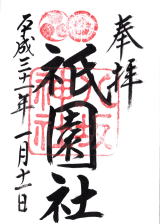 奉拝
祇園社
平成三十一年一月十一日
八坂
神社